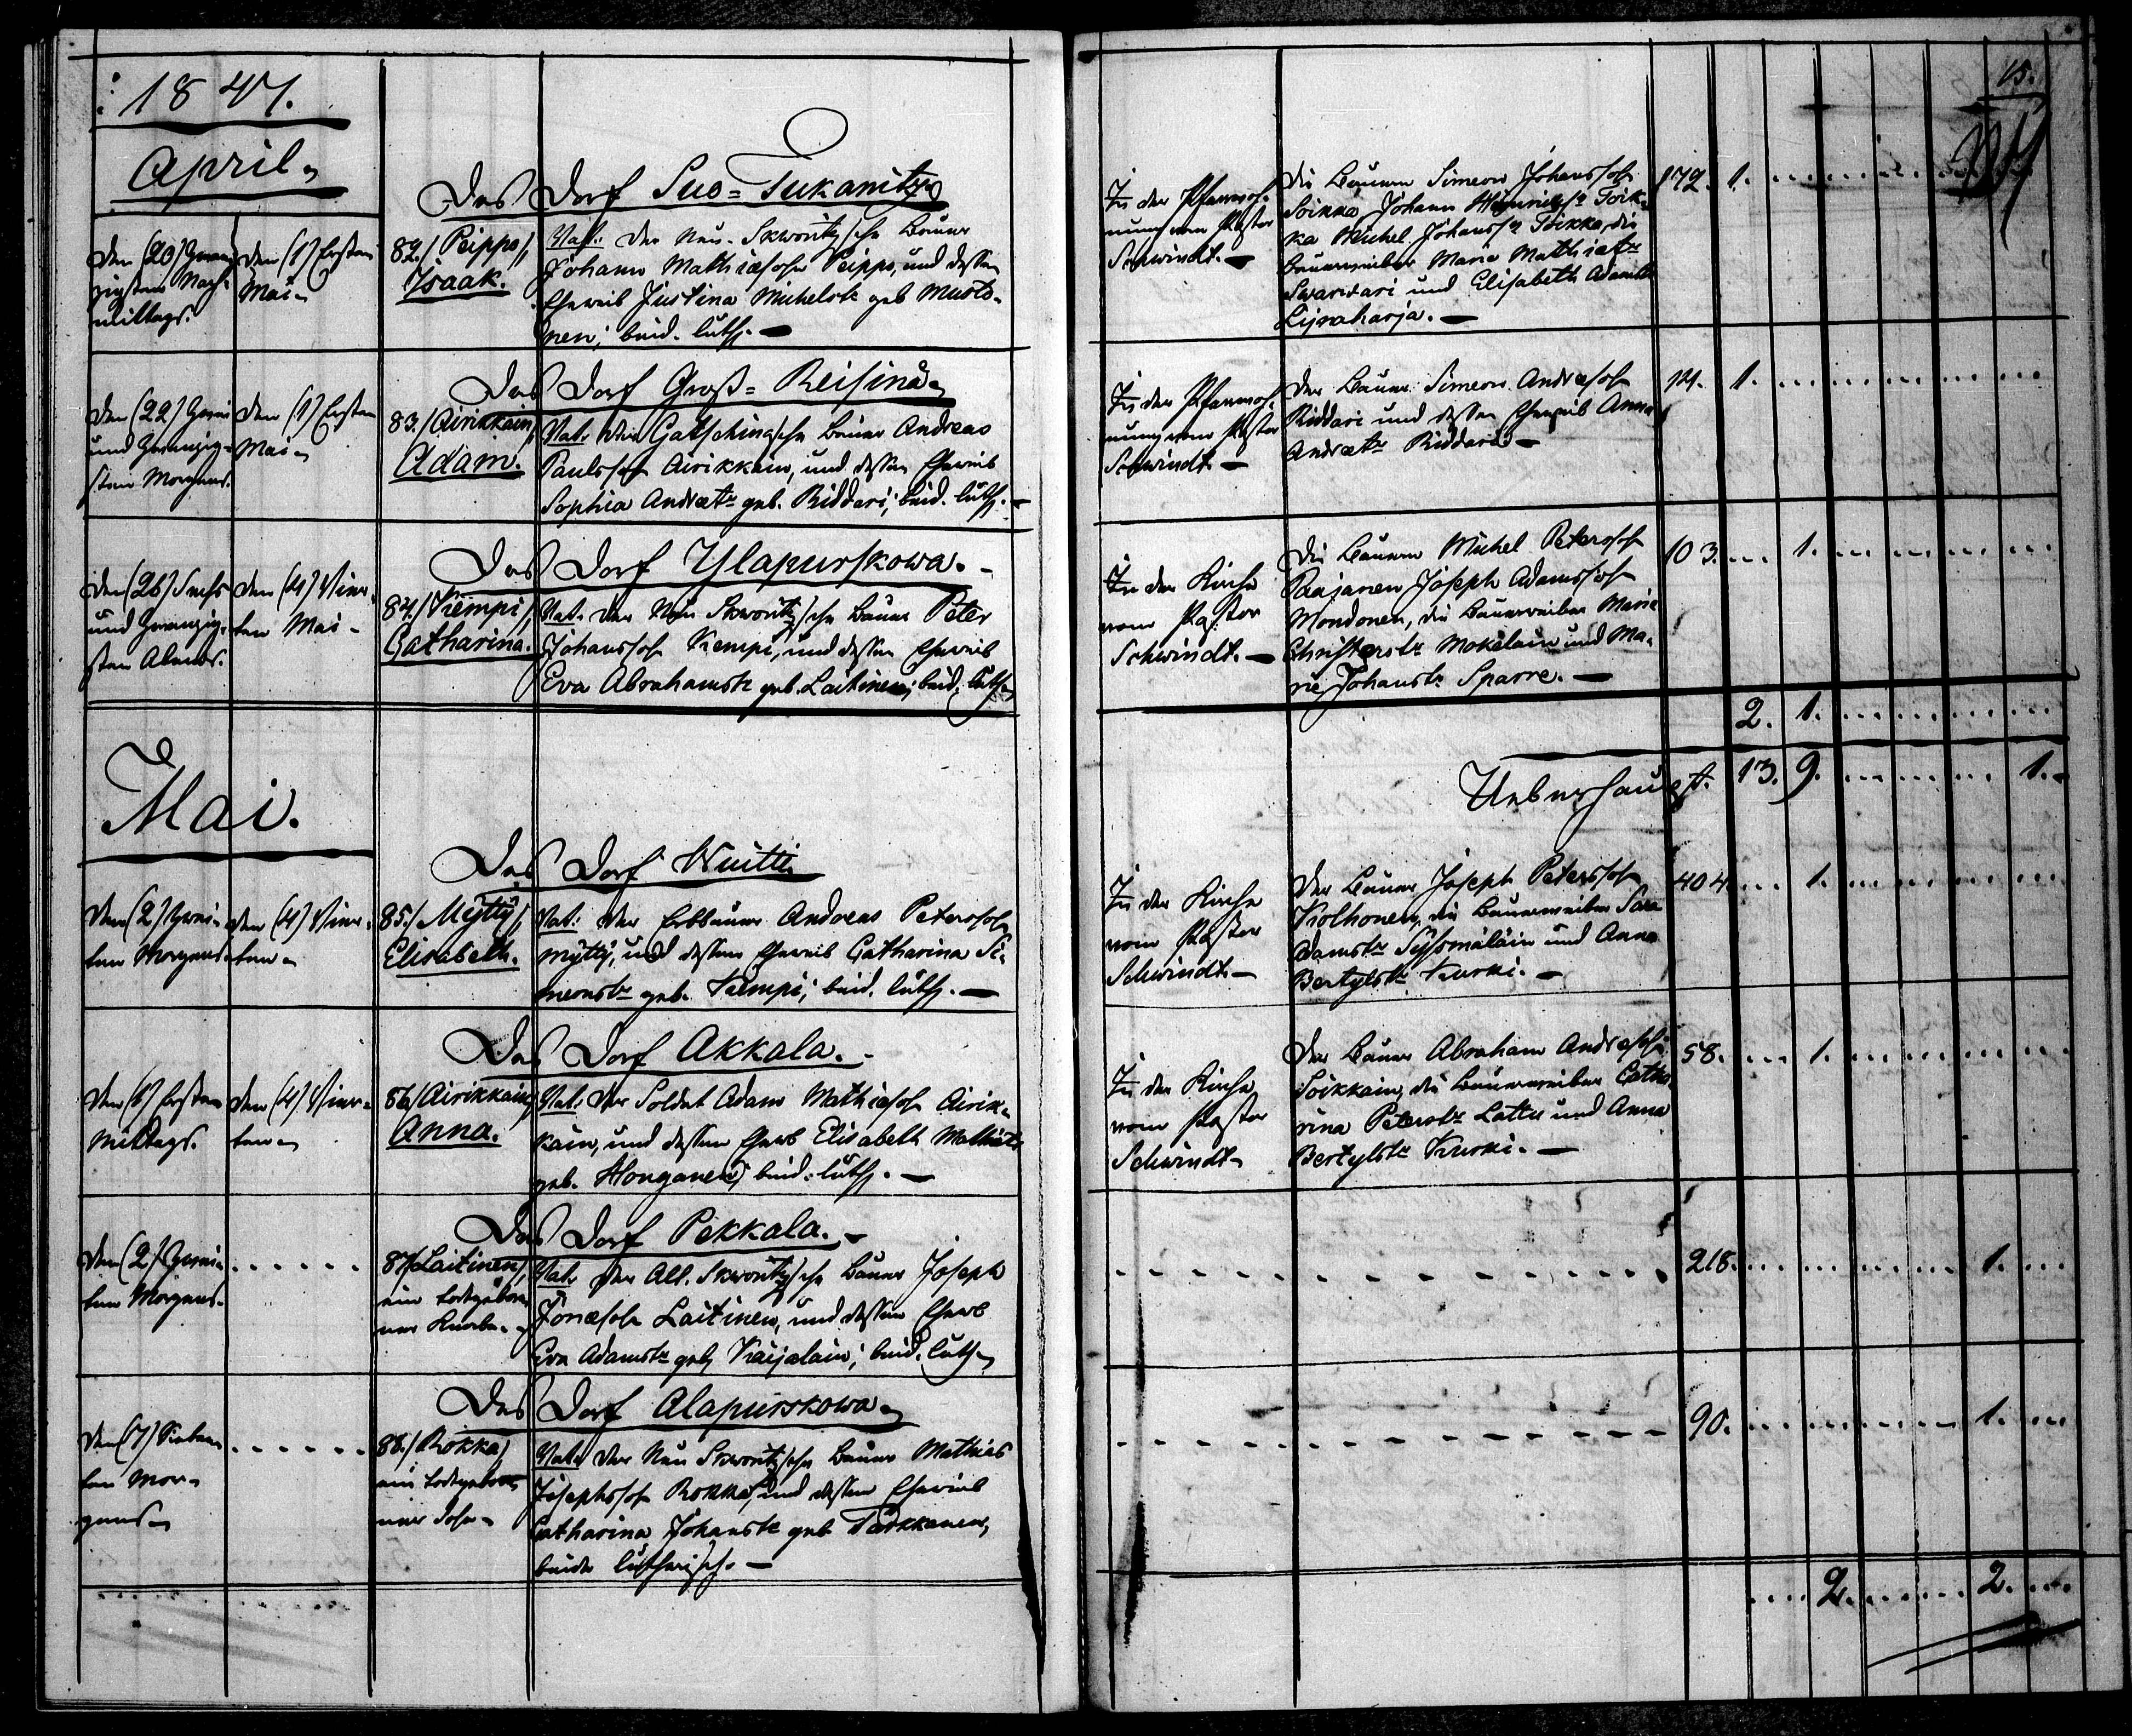 1847.
April.
Das Dorf Suo-Tukanitze
Den (20) Zwan-
zigsten Nach-
mittags.
Den (1) Ersten
Mai.
82./ Peippo,
Isaak.
Vat: Der Neu-Skworitzsche Bauer
Johann Mathiassohn Peippo, und dessen
Eheweib Justina Michelstr geb Musto-
nen; beid. luth.
Das Dorf Groß-Reisino
Den (22) Zwei
und Zwanzig-
sten Morgens.
Den (1) Ersten
Mai
83./ Airikkain,
Adam.
Vat: Der Gatschinasche Bauer Andreas
Paulssohn Airikkain, und dessen Eheweib
Sophia Andreastr geb. Riddari; beid. luth.
Das Dorf Ylapurskowa.
Den (26) Sechs
und Zwanzig-
sten Abends.
Den (4) Vier-
ten Mai
84./ Kiempi,
Catharina.
Vat. Der Neu Skworitzsche Bauer Peter
Johanssohn Kempi, und dessen Eheweib
Eva Abrahamstr geb. Laitinen; beid. luth
Mai.
Das Dorf Wuitti
Den (2) Zwei-
ten Morgens
Den (4) Vier-
ten
85./ Mÿttÿ,
Elisabeth.
Vat: Der Erbbauer Andreas Peterssohn
Mÿttÿ, und dessen Eheweib Catharina Si-
meonstr geb. Kempi; beid. luth.
Das Dorf Akkala.
Den (1) Ersten
Mittags.
Den (4) Vier-
ten
86./ Airikkain,
Anna.
Vat: Der Soldat Adam Mathiassohn Airik-
kain, und dessen Ehewb Elisabeth Mathiastr
geb. Honganen; beid. luth.
Das Dorf Pekkala.
Den (2) Zwei-
ten Morgens.
87./ Laitinen,
ein todtgebore-
ner Knabe.
Vat. Der Alt. Skworitzsche Bauer Joseph
Jonassohn Laitinen, und dessen Ehewb
Eva Adamstr geb. Kaijalain; beid. luth
Das Dorf Alapurskowa
Den (7) Sieben-
ten Mor-
gens
88./ Rokka,
ein todtgebore-
ner Sohn
Vat. Der Neu Skworitzsche Bauer Mathias
Josephssohn Rokka, und dessen Eheweib
Catharina Johanstr geb Tarkkanen,
beide lutherisch.
15.
In der Pfarrwoh-
nung vom Pastor
Schwindt.
Die Bauern Simeon Johanssohn
Soikka, Johann Heinrichss Toik-
ka Michel Johanss Toikka, die
Bauerweiber Maria Mathiastr
Swarwari und Elisabeth Adamstr
Lijwaharja.
172. 1.
In der Pfarrwoh-
nung vom Pastor
Schwindt
Der Bauer Simeon Andreassohn
Riddari und dessen Eheweib Anna
Andreastr Riddari.
121. 1.
In der Kirche
vom Pastor
Schwindt.
Die Bauern Michel Peterssohn
Paajanen Joseph Adamssohn
Mondonen, die Bauerweiber Marie
Christerstr Mokelain und Ma-
rie Johanstr Sparre.
103. 1.
2. 1.
Ueberhaupt. 13. 9. 1.
In der Kirche
vom Pastor
Schwindt
Der Bauer Joseph Peterssohn
Kolhonen, die Bauerweiber Sara
Adamstr Sÿssmäläin und Anna
Bertylstr Kurki.
404. 1.
In der Kirche
vom Pastor
Schwindt
Der Bauer Abraham Andreassohn
Soikkain, die Bauerweiber Catha-
rina Peterstr Lattu und Anna
Bertylstr Kurki.
58. 1.
218. 1.
90. 1.
2. 2.